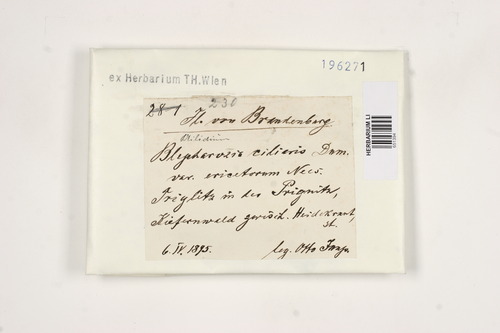 196271
ex Herbarium TH.Wien
HERBARIUM LI
28 1 236
Fl. von Brandenburg
Ptilidium
Blepharozia ciliaris Dum.
var. ericetorum Nees.
Triglitz in der Prignitz,
Kiefernwald zwisch. Heidekraut,
st.
6. IV. 1895. leg. Otto Jaap.